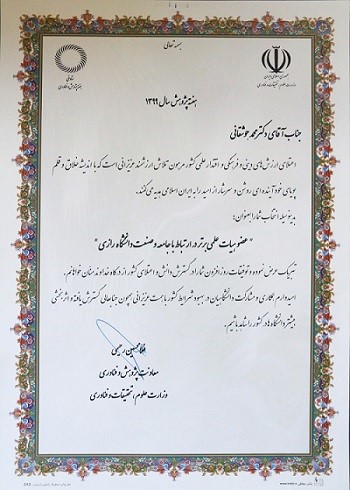 بسمه تعالی
جمهوری اسلامی ایران
وزارت علوم، تحقیقات و فناوری
هفته پژوهش سال ۱۳۹۹
جناب آقای دکتر محمد جوشقانی
اعتلای ارزش‌های دینی و فرهنگی و اقتدار علمی کشور مرهون تلاش ارزشمند عزیزانی است که با اندیشه خلاق و قلم
پویای خود آینده‌ای روشن و سرشار از امید را به ایران اسلامی هدیه می‌کنند.
بدینوسیله انتخاب شما را بعنوان:
"عضو هیات علمی برتر در ارتباط با جامعه و صنعت دانشگاه رازی"
تبریک عرض نموده و توفیقات روزافزون شما را در گسترش دانش و اعتلای کشور از درگاه خداوند منان خواهانم.
امیدوارم همکاری و مشارکت دانشگاهیان در بهبود شرایط کشور با همت عزیزانی همچون جنابعالی گسترش یافته و اثربخشی
بیشتر دانشگاه‌ها در کشور را شاهد باشیم.
غلامحسین رحیمی
معاونت پژوهش و فناوری
وزارت علوم، تحقیقات و فناوری